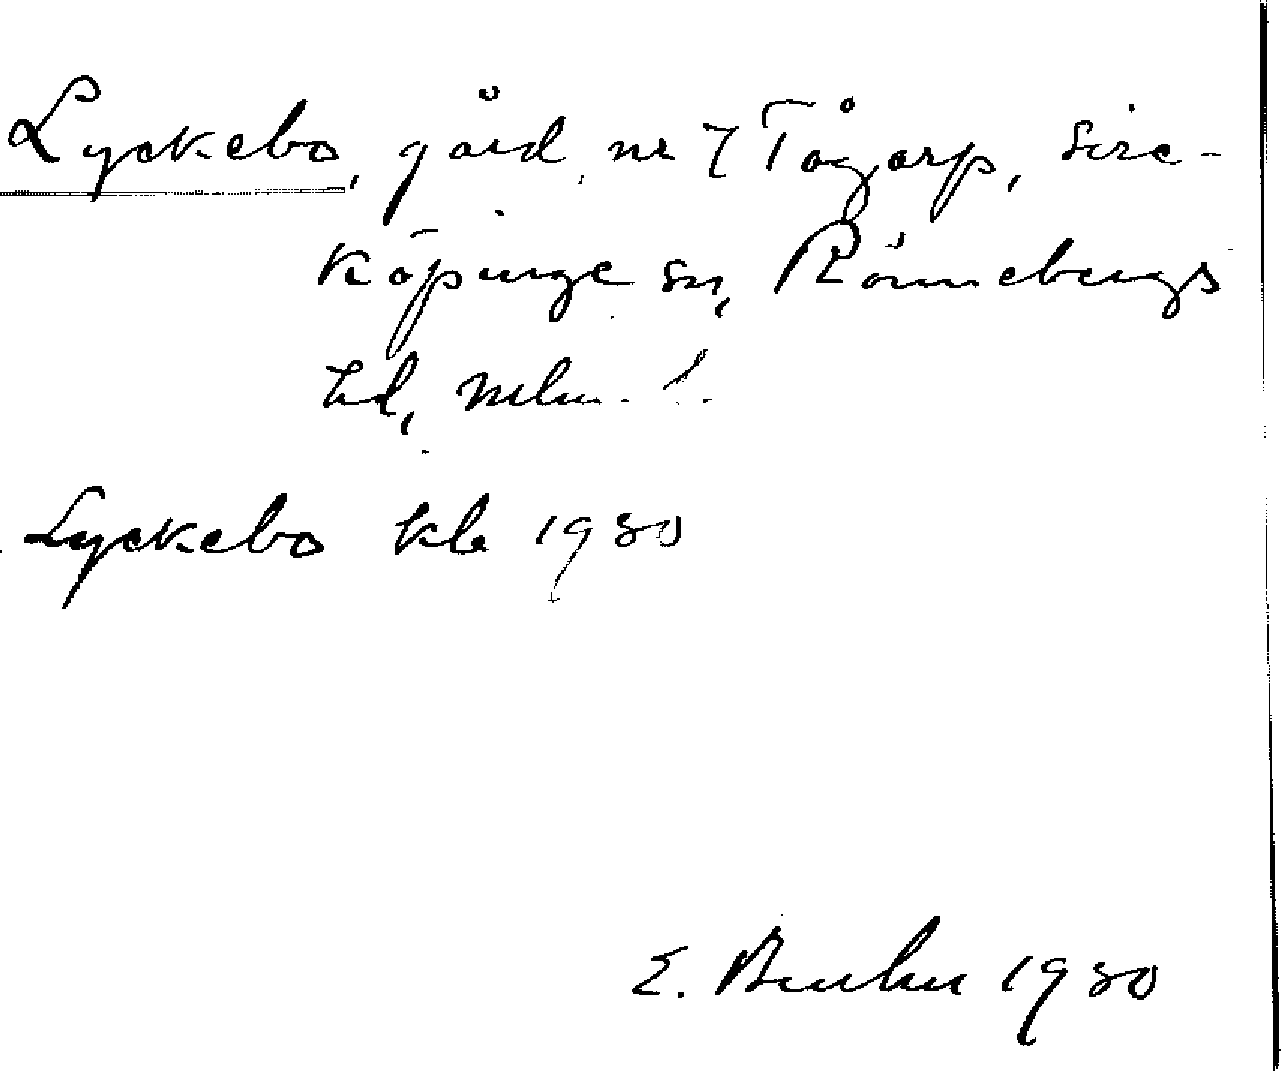 Lyckebo, gård nr 7 Tågarp, Sire-
köpinge sn, Rönnebergs
hd, Mlm. l.
Lyckebo kla 1930
E. 1930